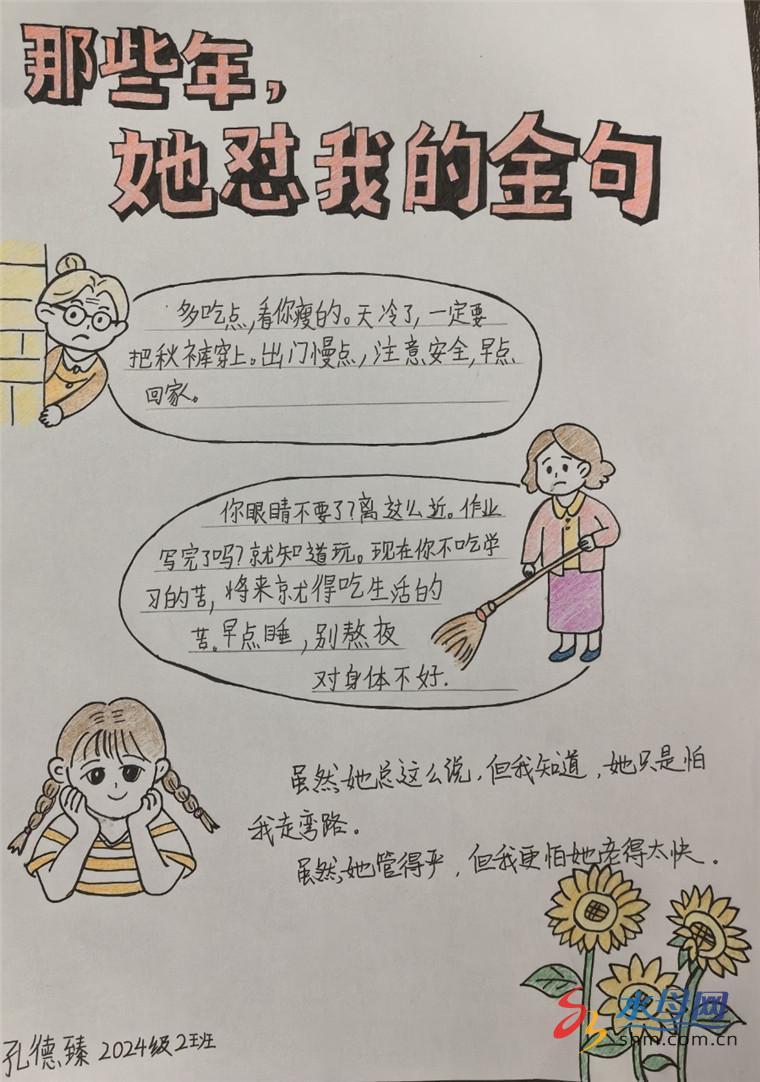 那些年，
她怼我的金句
多吃点，看你瘦的。天冷了，一定要
把秋裤穿上。出门慢点，注意安全，早点
回家。
你眼睛不要了?离这么近。作业
写完了吗?就知道玩。现在你不吃学
习的苦，将来就得吃生活的
苦。早点睡，别熬夜
对身体不好.
虽然她总这么说，但我知道，她只是怕
我走弯路。
虽然她管得严，但我更怕她老得太快。
水母网
shm.com.cn
孔德臻 2024级2班